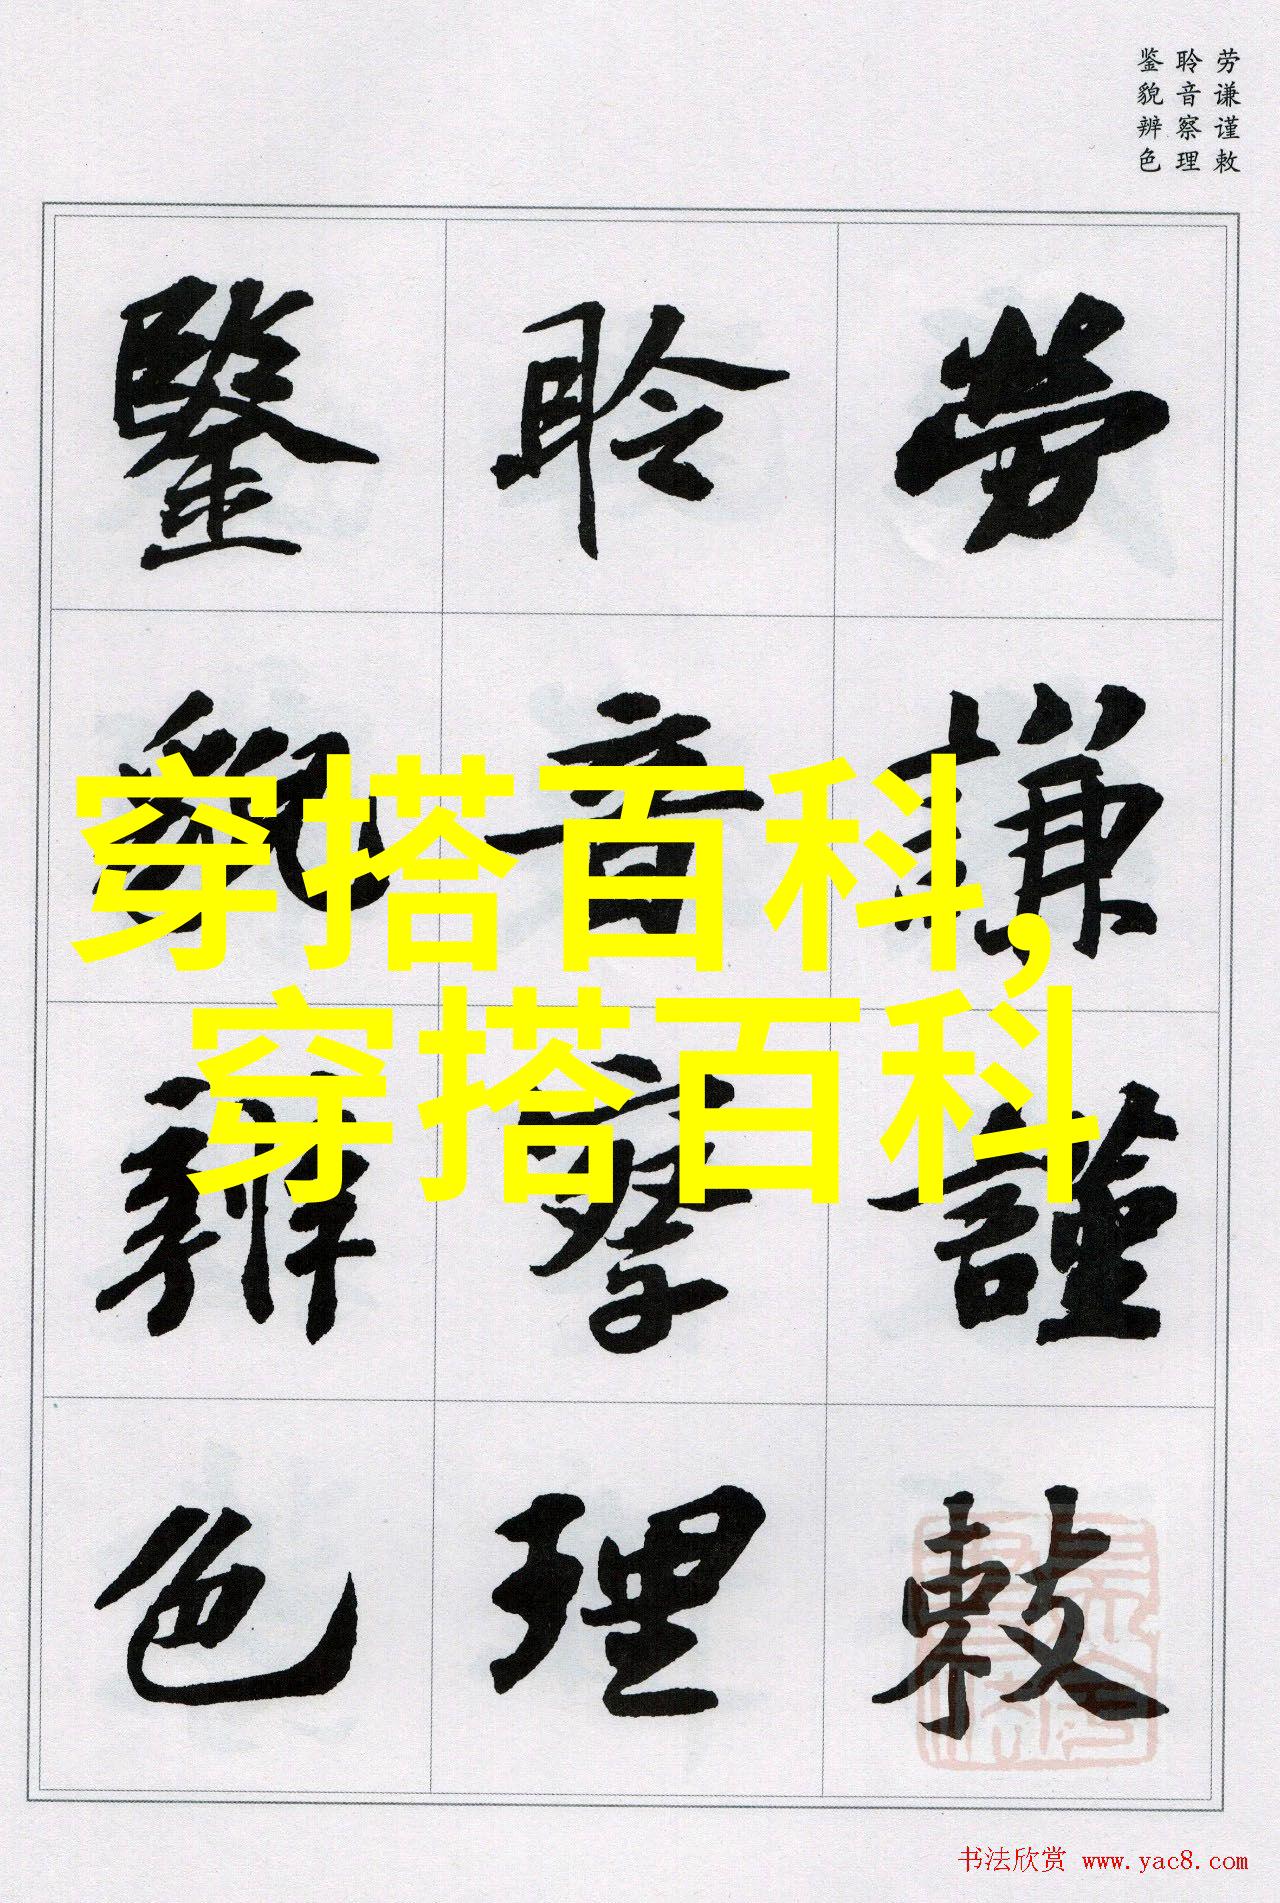 劳谦谨敕
聆音察理
鉴貌辨色
勞謙謹敕
聆音察理
鑒貌辨色
穿搭百科,
穿搭百科
书法欣赏 www.yac8.com